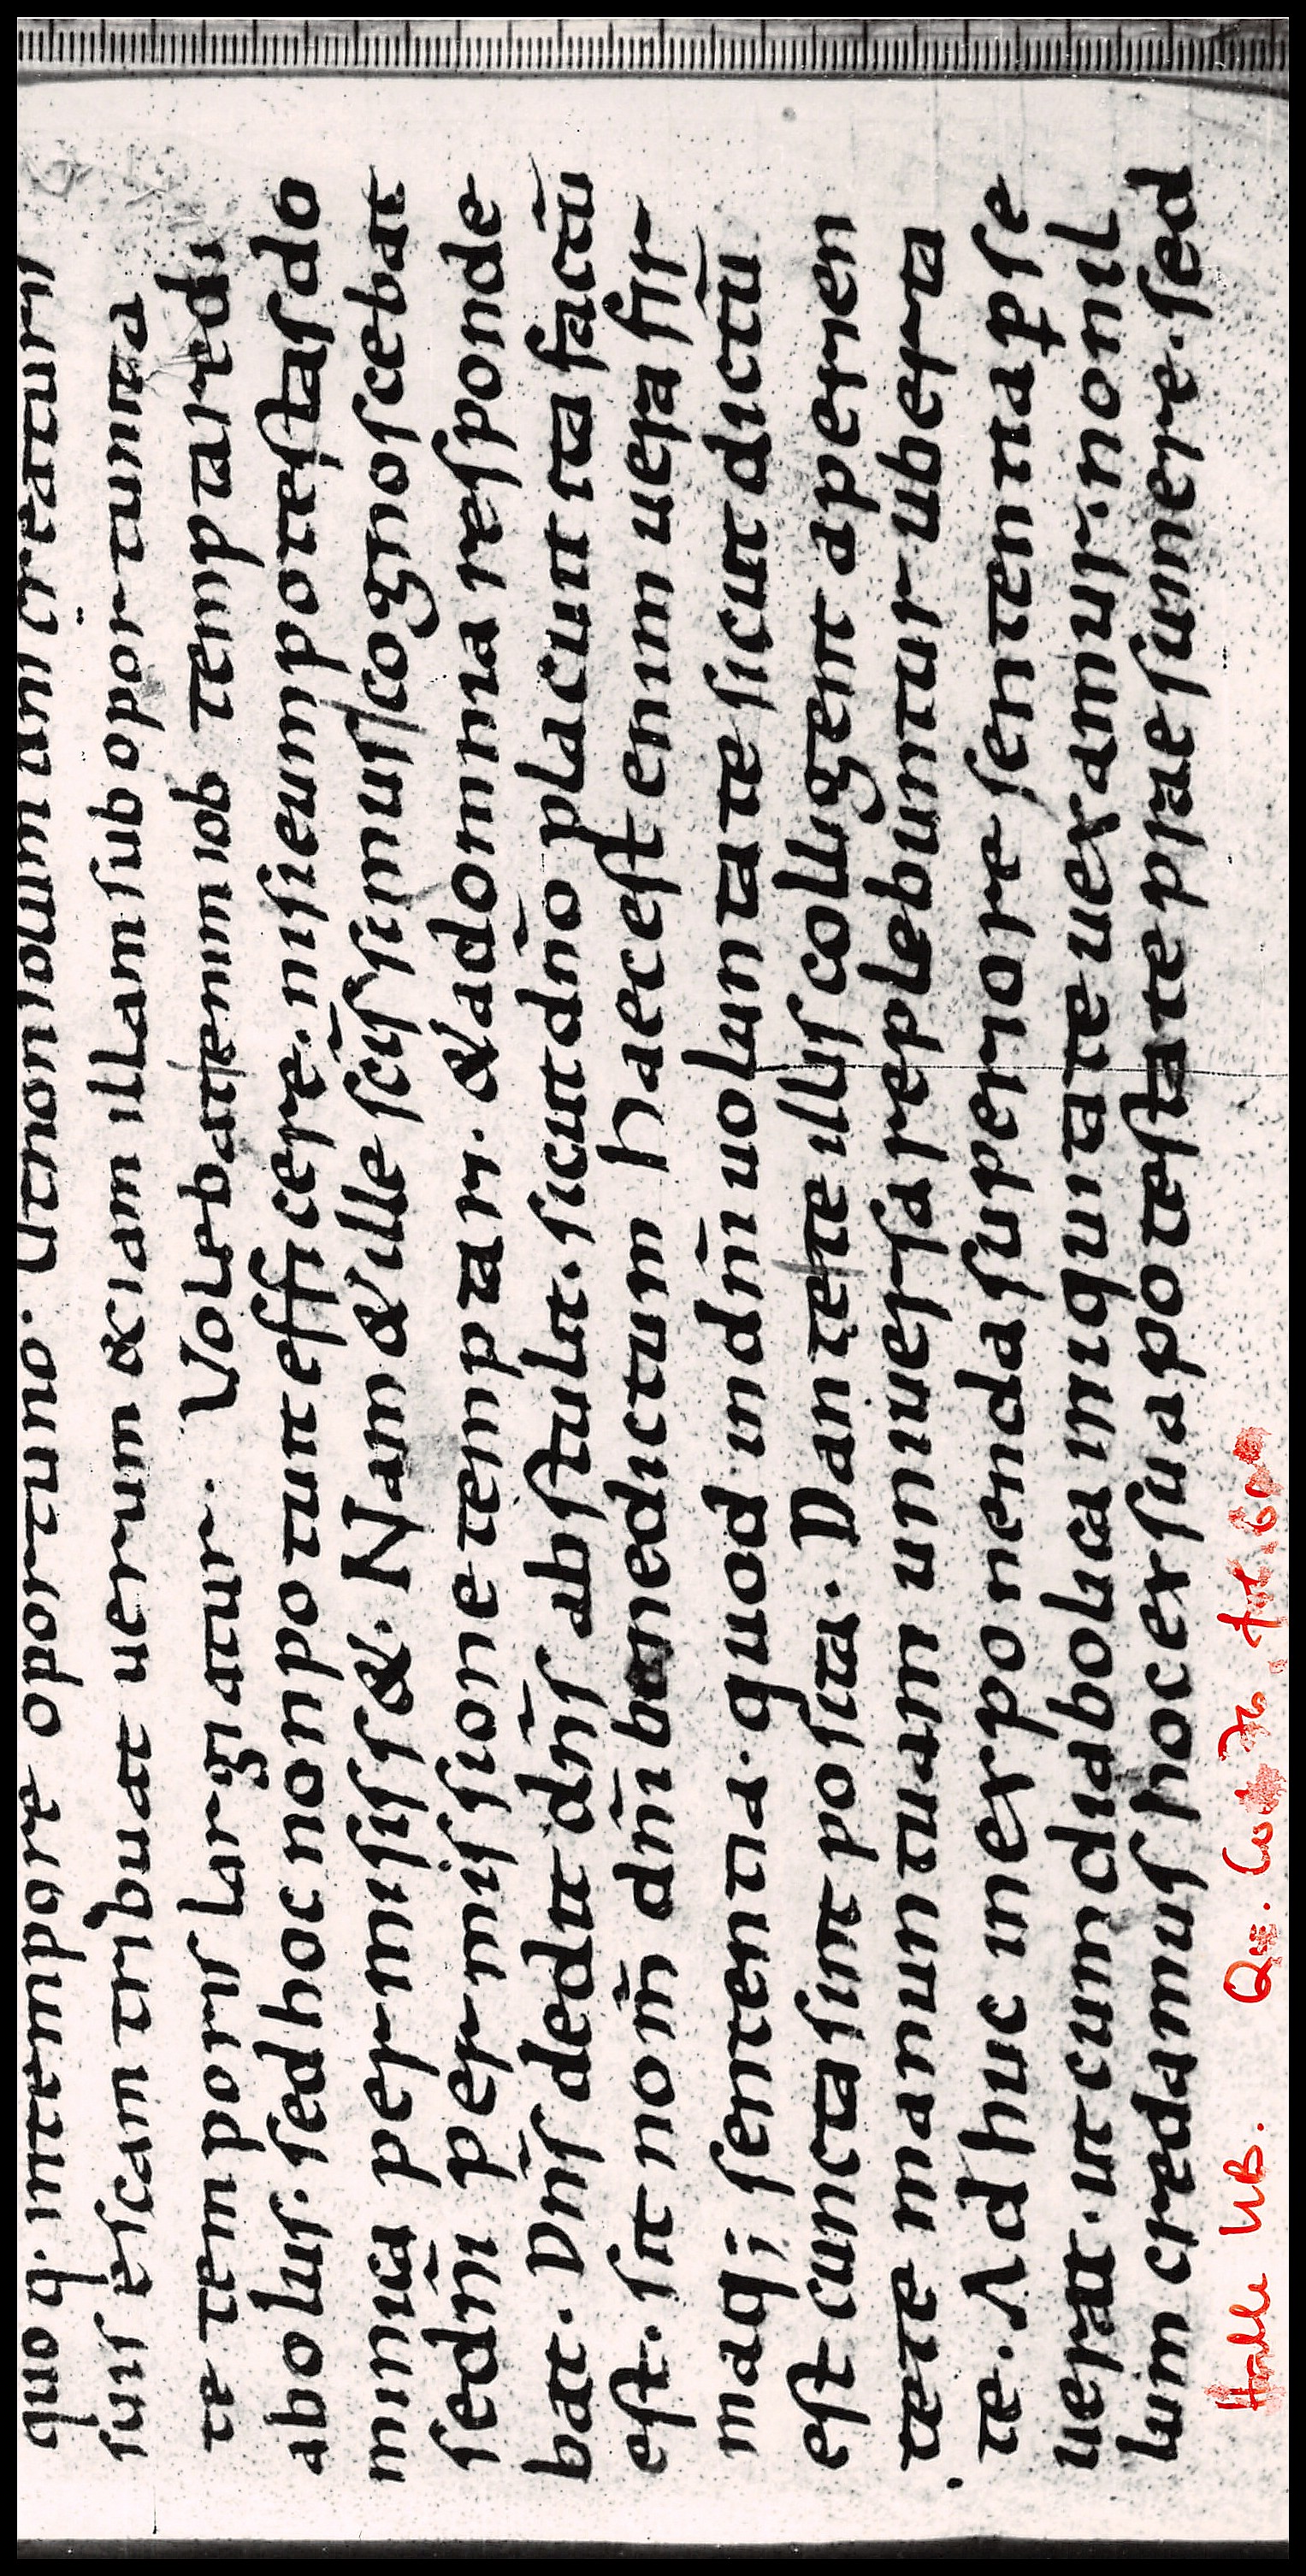 quoq. intempore oportuno. Utnonsolum ani creaturis
suis escam tribuat uerum &iam illam sub oportunita
te temporis largiatur. Volebat enim iob temptare di
abolus. sed hoc non poterat efficere. nisi eum potestas do
minica permisiss&. Nam & ille scīs simus cognoscebat
se dnī permissione temptari. & ad omnia responde
bat. Dns̄ dedit dns̄ abstulit. sicut dnō placuit ita factū
est. sit nom̄ dnī benedictum haec est enim uera fir
maq; sententia. quod in dnī uoluntate sicut dictū
est cuncta sint posita. Dante te illis colligent aperien
te te manum tuam uniuersa replebuntur ubertā
te. Adhuc in exponenda superiore sententia ꝑse
uerat. ut cum diabolica iniquitate uexamur. non il
lum credamus hoc ex sua potestate praesumere. sed
Halle UB. Qu. Cod. 76, fol. 60v